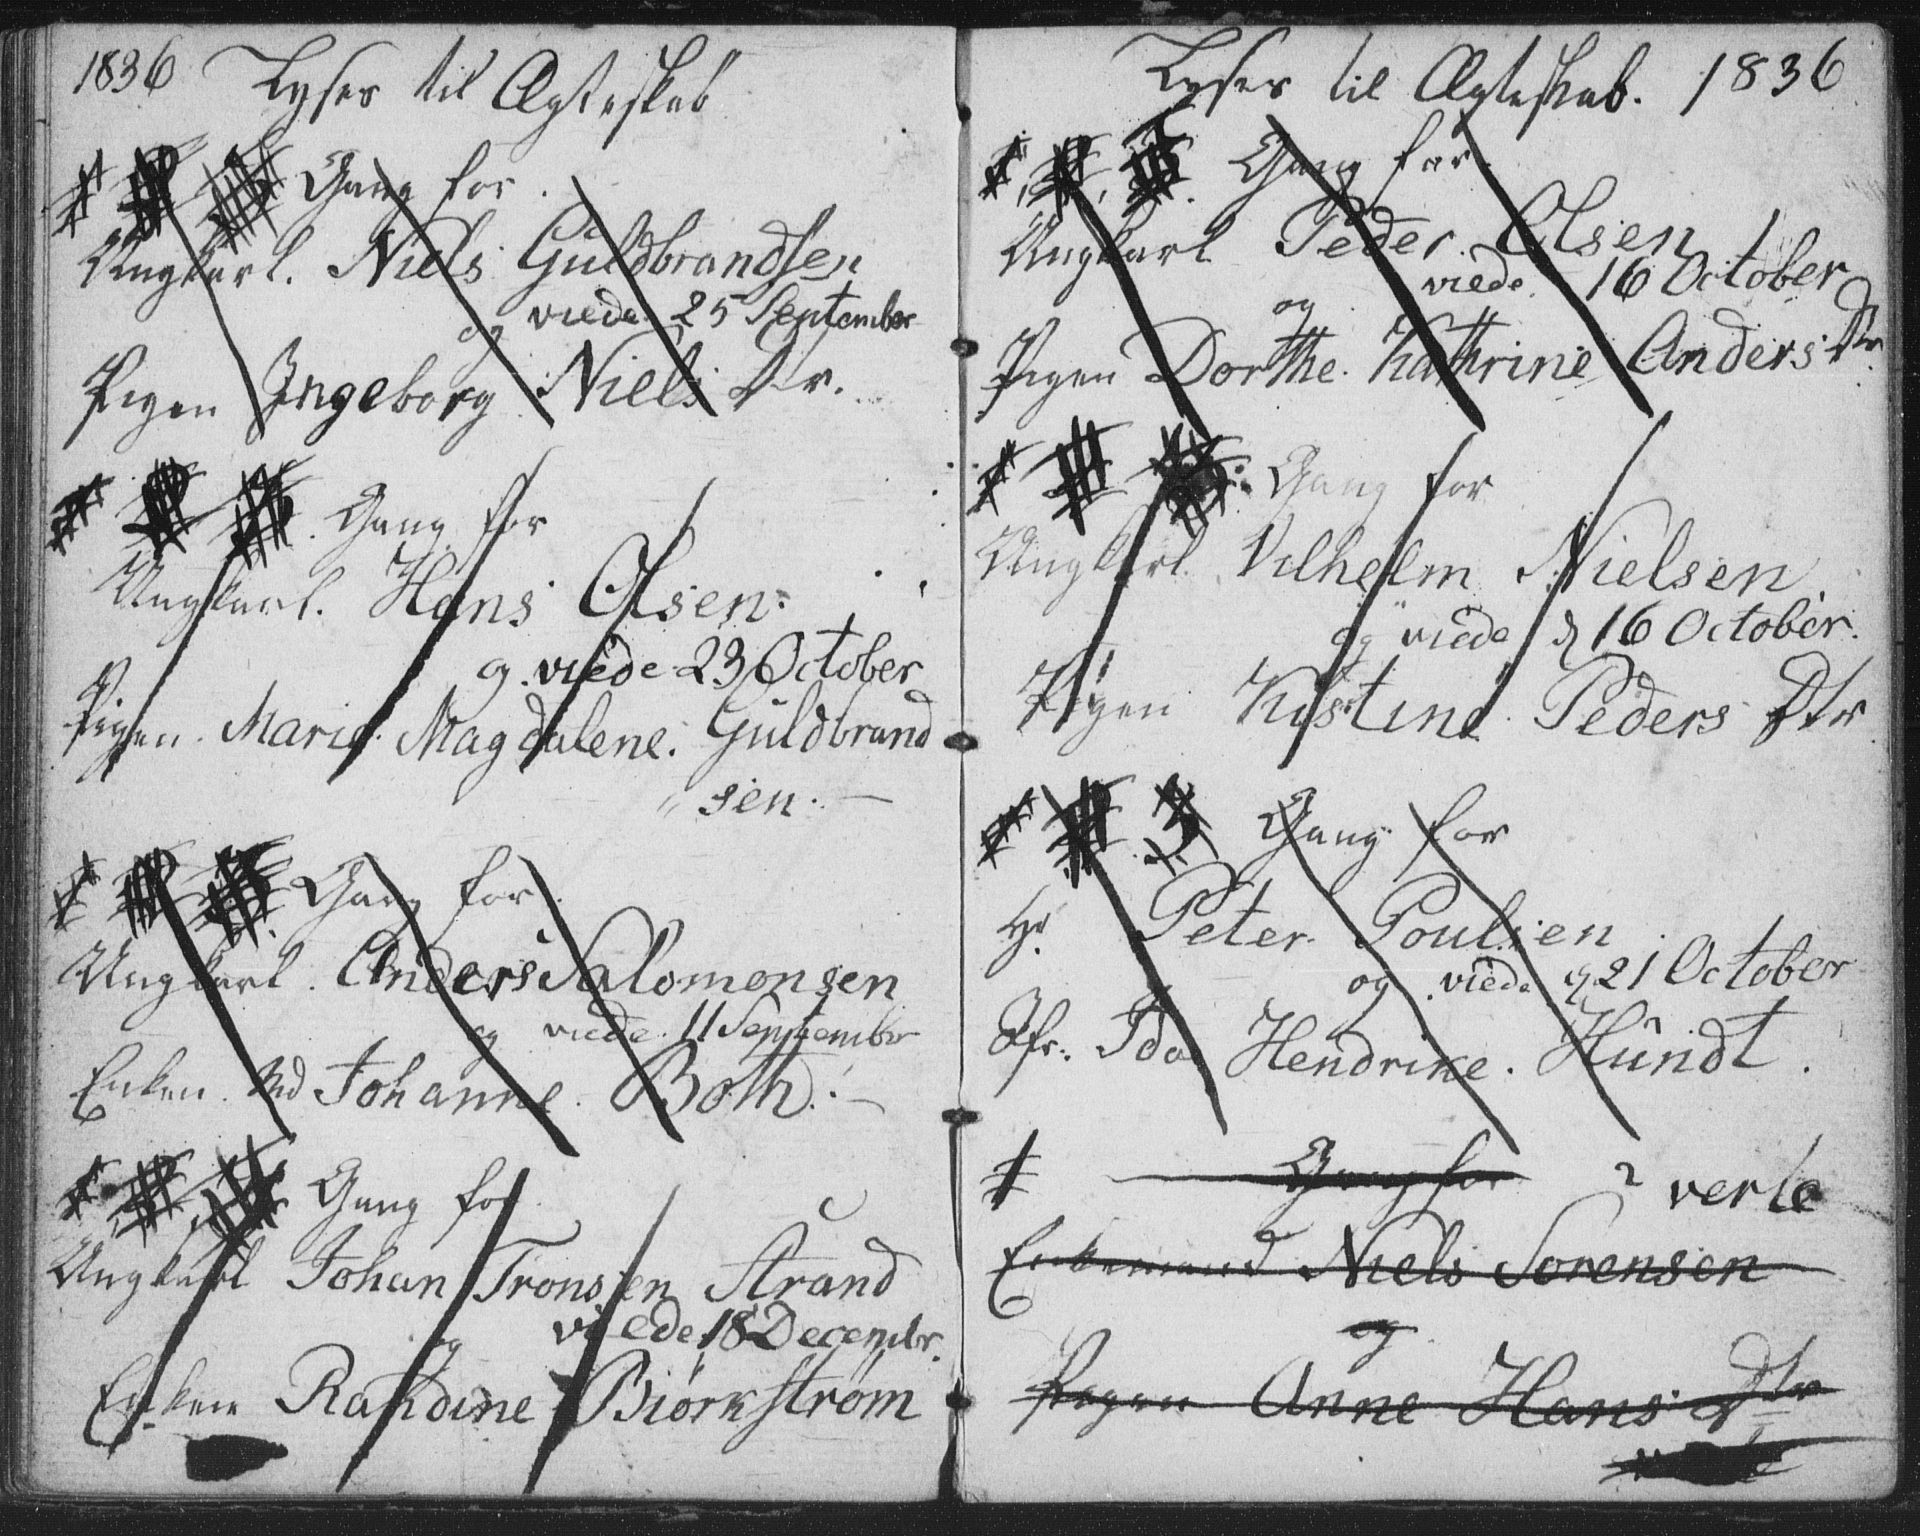 1836 Lyses til Ægteskab
Gang for
Ungkarl. Niels Guldbrandsen
og viede 25 September
Pigen Ingeborg Niels Dr.
Gang for
Ungkarl. Hans Olsen.
og viede 23 October
Pigen Marie Magdalene. Guldbrand
" sen. —
Gang for
Ungkarl. Anders Salomonsen
og viede 11 September
Enken Johanne Both. —
Gang for
Ungkarl Johan Tronsen Strand
og viede 18 Decembr.
Enken Randine Biørkstrøm
Lyses til Ægteskab. 1836
Gang for
Ungkarl Peder Olsen
og viede 16 October
Pigen Dorthe Kathrine Anders Dtr
Gang for
Ungkarl Vilhelm Nielsen
og viede d 16 October.
Pigen Kistine Peders Dtr
Gang for
Hr. Peter Poulsen
og viede d 21 October
Jfr. Ida Hendrike. Hundt.
Gang for verte
Enkemand Niels Sorensen
og
Pigen Anne Hans Dtr